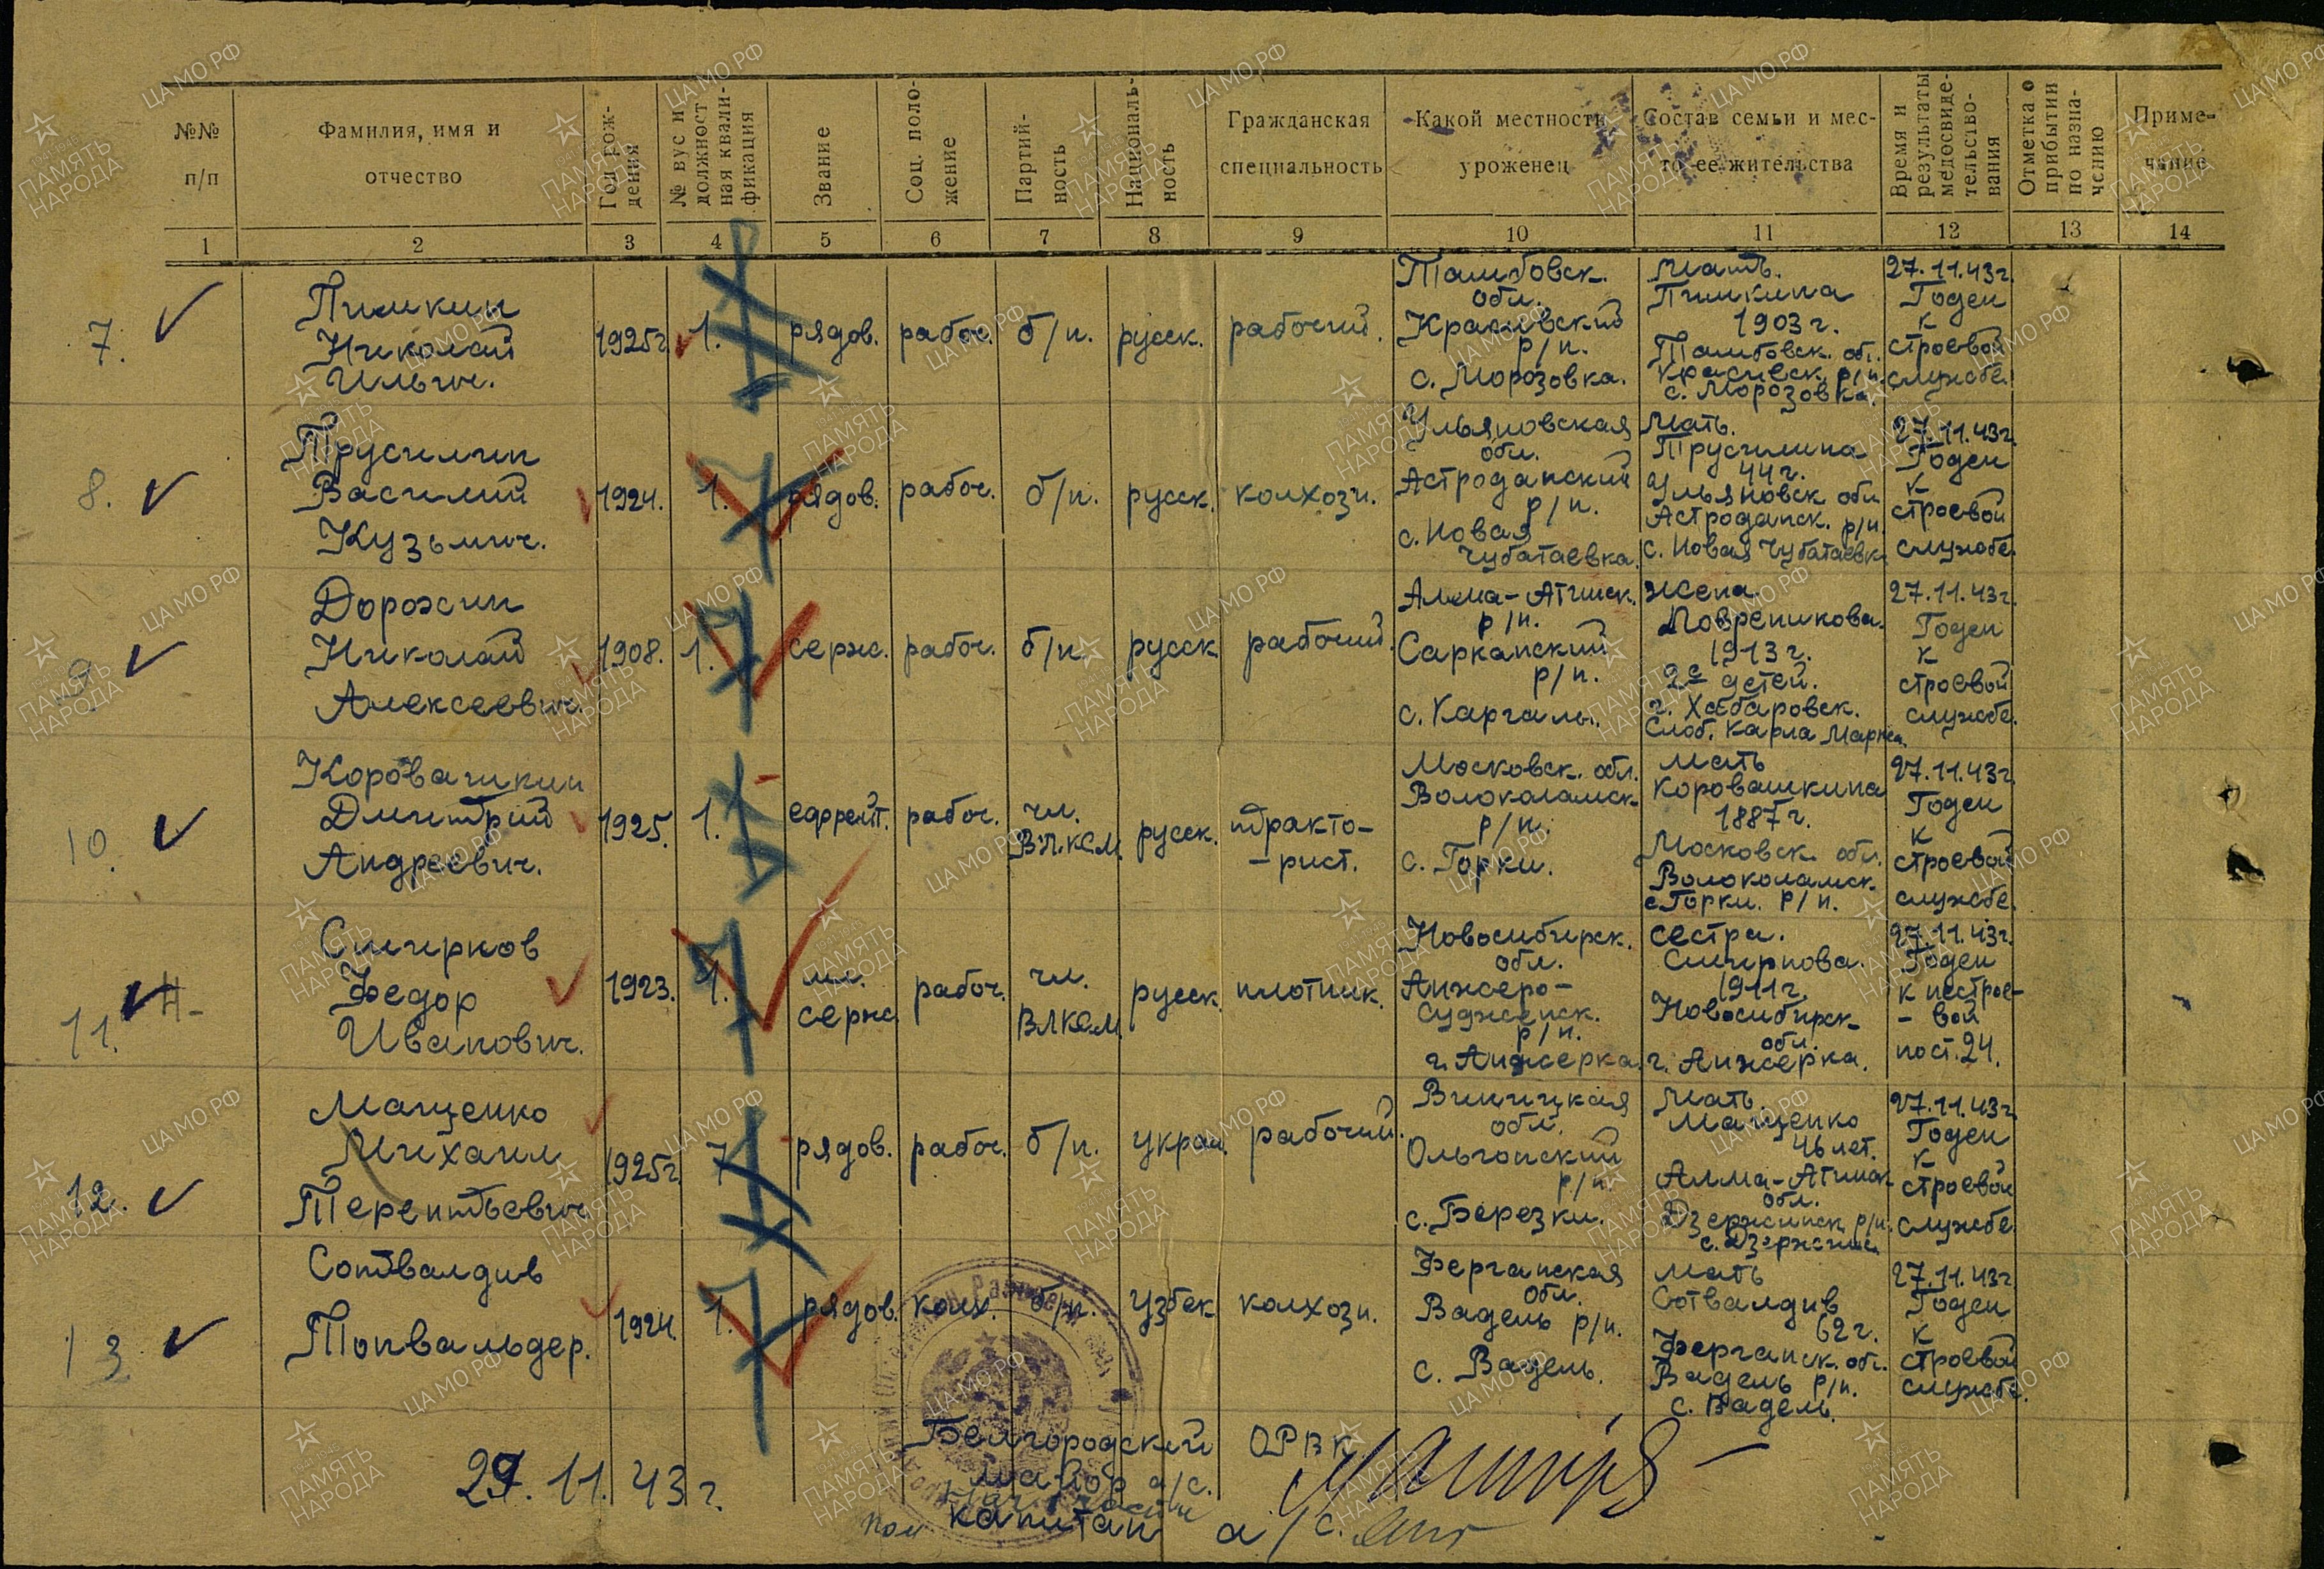 №№ п/п
Фамилия, имя и отчество
Год рождения
№ вус и должностная квалификация
Звание
Соц. положение
Партийность
Национальность
Гражданская специальность
Какой местности уроженец
Состав семьи и место ее жительства
Время и результаты медосвидетельствования
Отметка о прибытии по назначению
Примечание
1 2 3 4 5 6 7 8 9 10 11 12 13 14
7.
Пимкин
Николай
Ильич.
1925г
1.
рядов.
рабоч.
б/п.
русск.
рабочий.
Тамбовск.
обл.
Красивский
р/н.
с. Морозовка.
Мать.
Пимкина
1903 г.
Тамбовск. об.
Красивск. р/н.
с. Морозовка.
27.11.43г.
Годен
к
строевой
службе.
8.
Трусилин
Василий
Кузьмич.
1924.
1.
рядов.
рабоч.
б/п.
русск.
колхозн.
Ульяновская
обл.
Астроданский
р/н.
с. Новая
Чуватаевка.
Мать.
Трусилина
44 г.
Ульяновск обл
Астроданск. р/н.
с. Новая Чуватаевк.
27.11.43г.
Годен
к
строевой
службе.
9
Дорохин
Николай
Алексеевич.
1908.
1.
серж.
рабоч.
б/п.
русск
рабочий.
Алма-Атинск.
р/н.
Саркапский
р/н.
с. Каргалы.
Жена.
1913 г.
2е детей.
г. Хабаровск.
Слоб. Карла Маркса.
27.11.43г.
Годен
к
строевой
службе.
10.
Коровашкин
Дмитрий
Андреевич.
1925.
1.
ефрейт.
рабоч.
чл.
ВЛКСМ
русск.
тракто-
-рист.
Московск. обл.
Волоколамск
р/н.
с. Горки.
Мать
Коровашкина
1887 г.
Московск. обл.
Волоколамск
с. Горки. р/н.
27.11.43г
Годен
к
строевой
службе.
11. Н-
Смирнов
Федор
Иванович.
1923.
1.
мл.
серж
рабоч.
чл.
ВЛКСМ
русск.
плотник.
Новосибирск.
обл.
Анжеро-
Судженск.
р/н.
г. Анжерка.
сестра.
Смирнова.
1911 г.
Новосибирск
обл.
г. Анжерка.
27.11.43г.
Годен
к нестрое-
- вой
пост. 24.
12.
Мащенко
Михаил
Терентьевич
1925г
1
рядов.
рабоч.
б/п.
украи
рабочий.
Виницкая
обл.
Ольгопский
р/н.
с. Березки.
Мать
Мащенко
46 лет.
Алма-Атинск
обл.
Дзержинск р/н.
27.11.43г.
Годен
к
строевой
службе
13
Сотвалдив
Топвальдер.
1924.
1.
рядов.
колх.
б/п.
узбек
колхозн.
Ферганская
обл.
Вадель р/н.
с. Вадель.
Мать
Сотвалдив
62 г.
Ферганск. об.
Вадель р/н.
с. Вадель.
27.11.43г
Годен
к
строевой
службе.
29.11.43 г.
Белгородский ОРВК
майор а/с.
капитан а/с.
ЦА МО РФ
ПАМЯТЬ НАРОДА